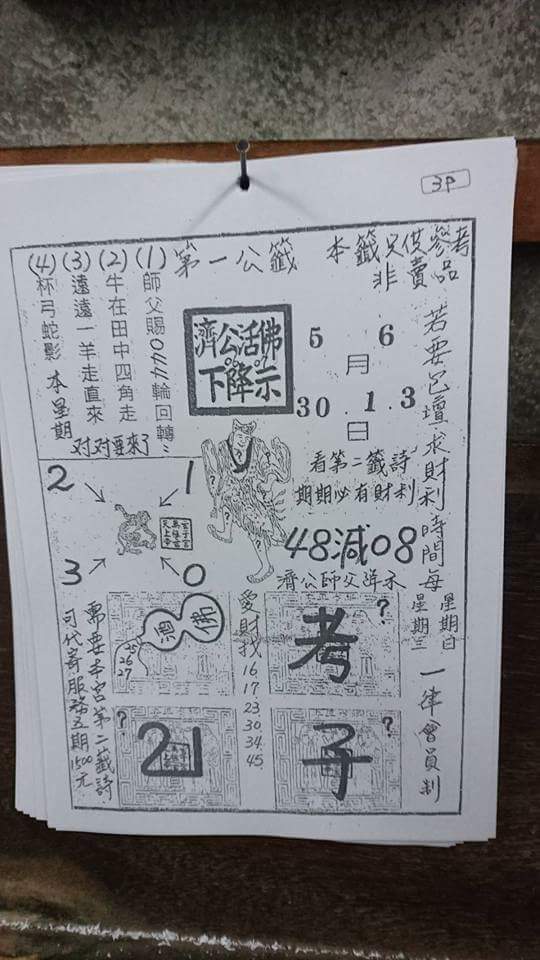 3P
本籤只供參考
非賣品
第一公籤
(1) 師父賜044輪回轉"
(2) 牛在田中四角走
(3) 遠遠一羊走直來
(4) 杯弓蛇影 本星期
对对要來了
濟公活佛
06 07
下降示
5 6
月
30.1.3
日
若要包壇求財利時間每
星期日
星期三
一律會員制
看第二籤詩
期期必有財利
48減08
濟公師父降示
2 1
3 0
佛
25
26
27
愛財找
16
17
23
30
34
45
?
考
?
21
?
子
需要本宮第二籤詩
可代寄服務五期1500元